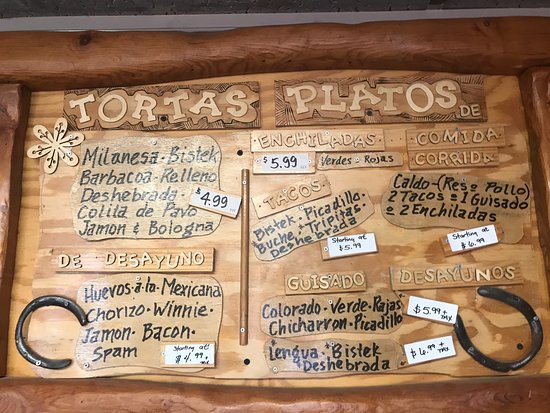 TORTAS
Milanesa · Bistek
Barbacoa · Relleno
Deshebrada ·
Colita de Pavo
Jamon & Bologna
$4.99
DE DESAYUNO
Huevos a la Mexicana
Chorizo · Winnie ·
Jamon · Bacon ·
Spam
Starting at
$4.99
PLATOS DE
ENCHILADAS
$5.99 Verdes · Rojas
TACOS
Bistek · Picadillo ·
Buche · Tripitas ·
Deshebrada
Starting at
$5.99
COMIDA
CORRIDA
Caldo - (Res o Pollo)
2 Tacos o 1 Guisado
o 2 Enchiladas
Starting at
$6.99
GUISADO DESAYUNOS
Colorado · Verde · Rajas
Chicharron · Picadillo
$5.99 + tax
Lengua · Bistek
· Deshebrada
$6.99 + tax